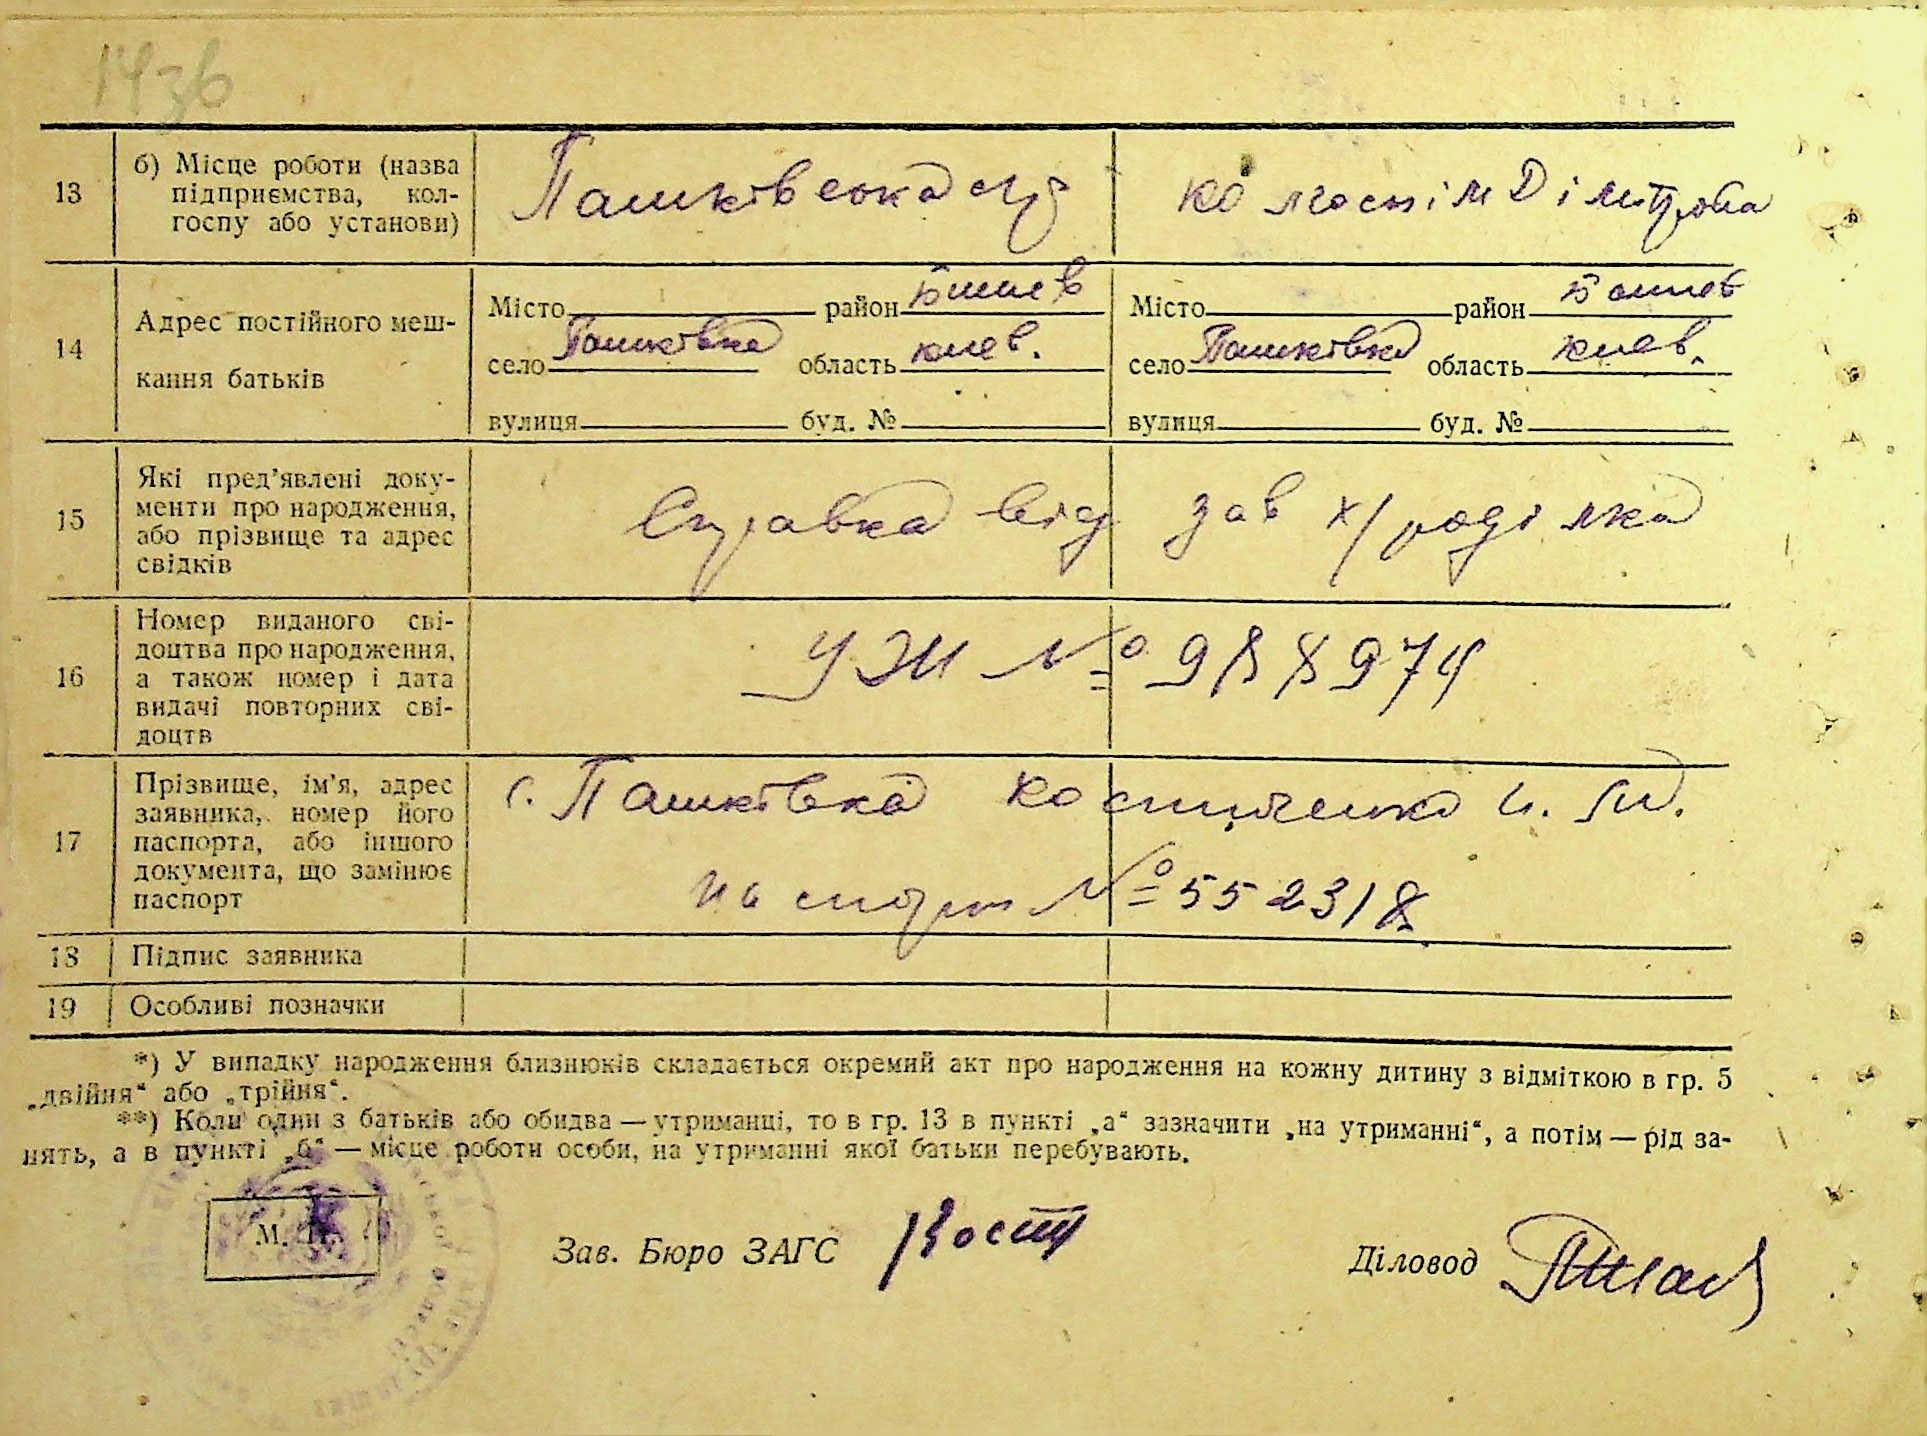 1436
13 б) Місце роботи (назва підприємства, колгоспу або установи) Пашківська с/р колгосп ім Дімітрова
14 Адрес постійного меш-
кання батьків
Місто район Бишев Місто район Бишев
село Пашківка область киев. село Пашківка область киев.
вулиця буд. № вулиця буд. №
15 Які пред’явлені доку-
менти про народження,
або прізвище та адрес
свідків
Справка від зав х/ роділка
16 Номер виданого сві-
доцтва про народження,
а також номер і дата
видачі повторних сві-
доцтв
УЖ № 988974
17 Прізвище, ім’я, адрес
заявника, номер його
паспорта, або іншого
документа, що замінює
паспорт
с. Пашківка
паспорт № 552318
18 Підпис заявника
19 Особливі позначки
*) У випадку народження близнюків складається окремий акт про народження на кожну дитину з відміткою в гр. 5
„двійня“ або „трійня“.
**) Коли один з батьків або обидва — утриманці, то в гр. 13 в пункті „а“ зазначити „на утриманні“, а потім — рід за-
нять, а в пункті „б“ — місце роботи особи, на утриманні якої батьки перебувають.
М. П. Зав. Бюро ЗАГС Кост Діловод